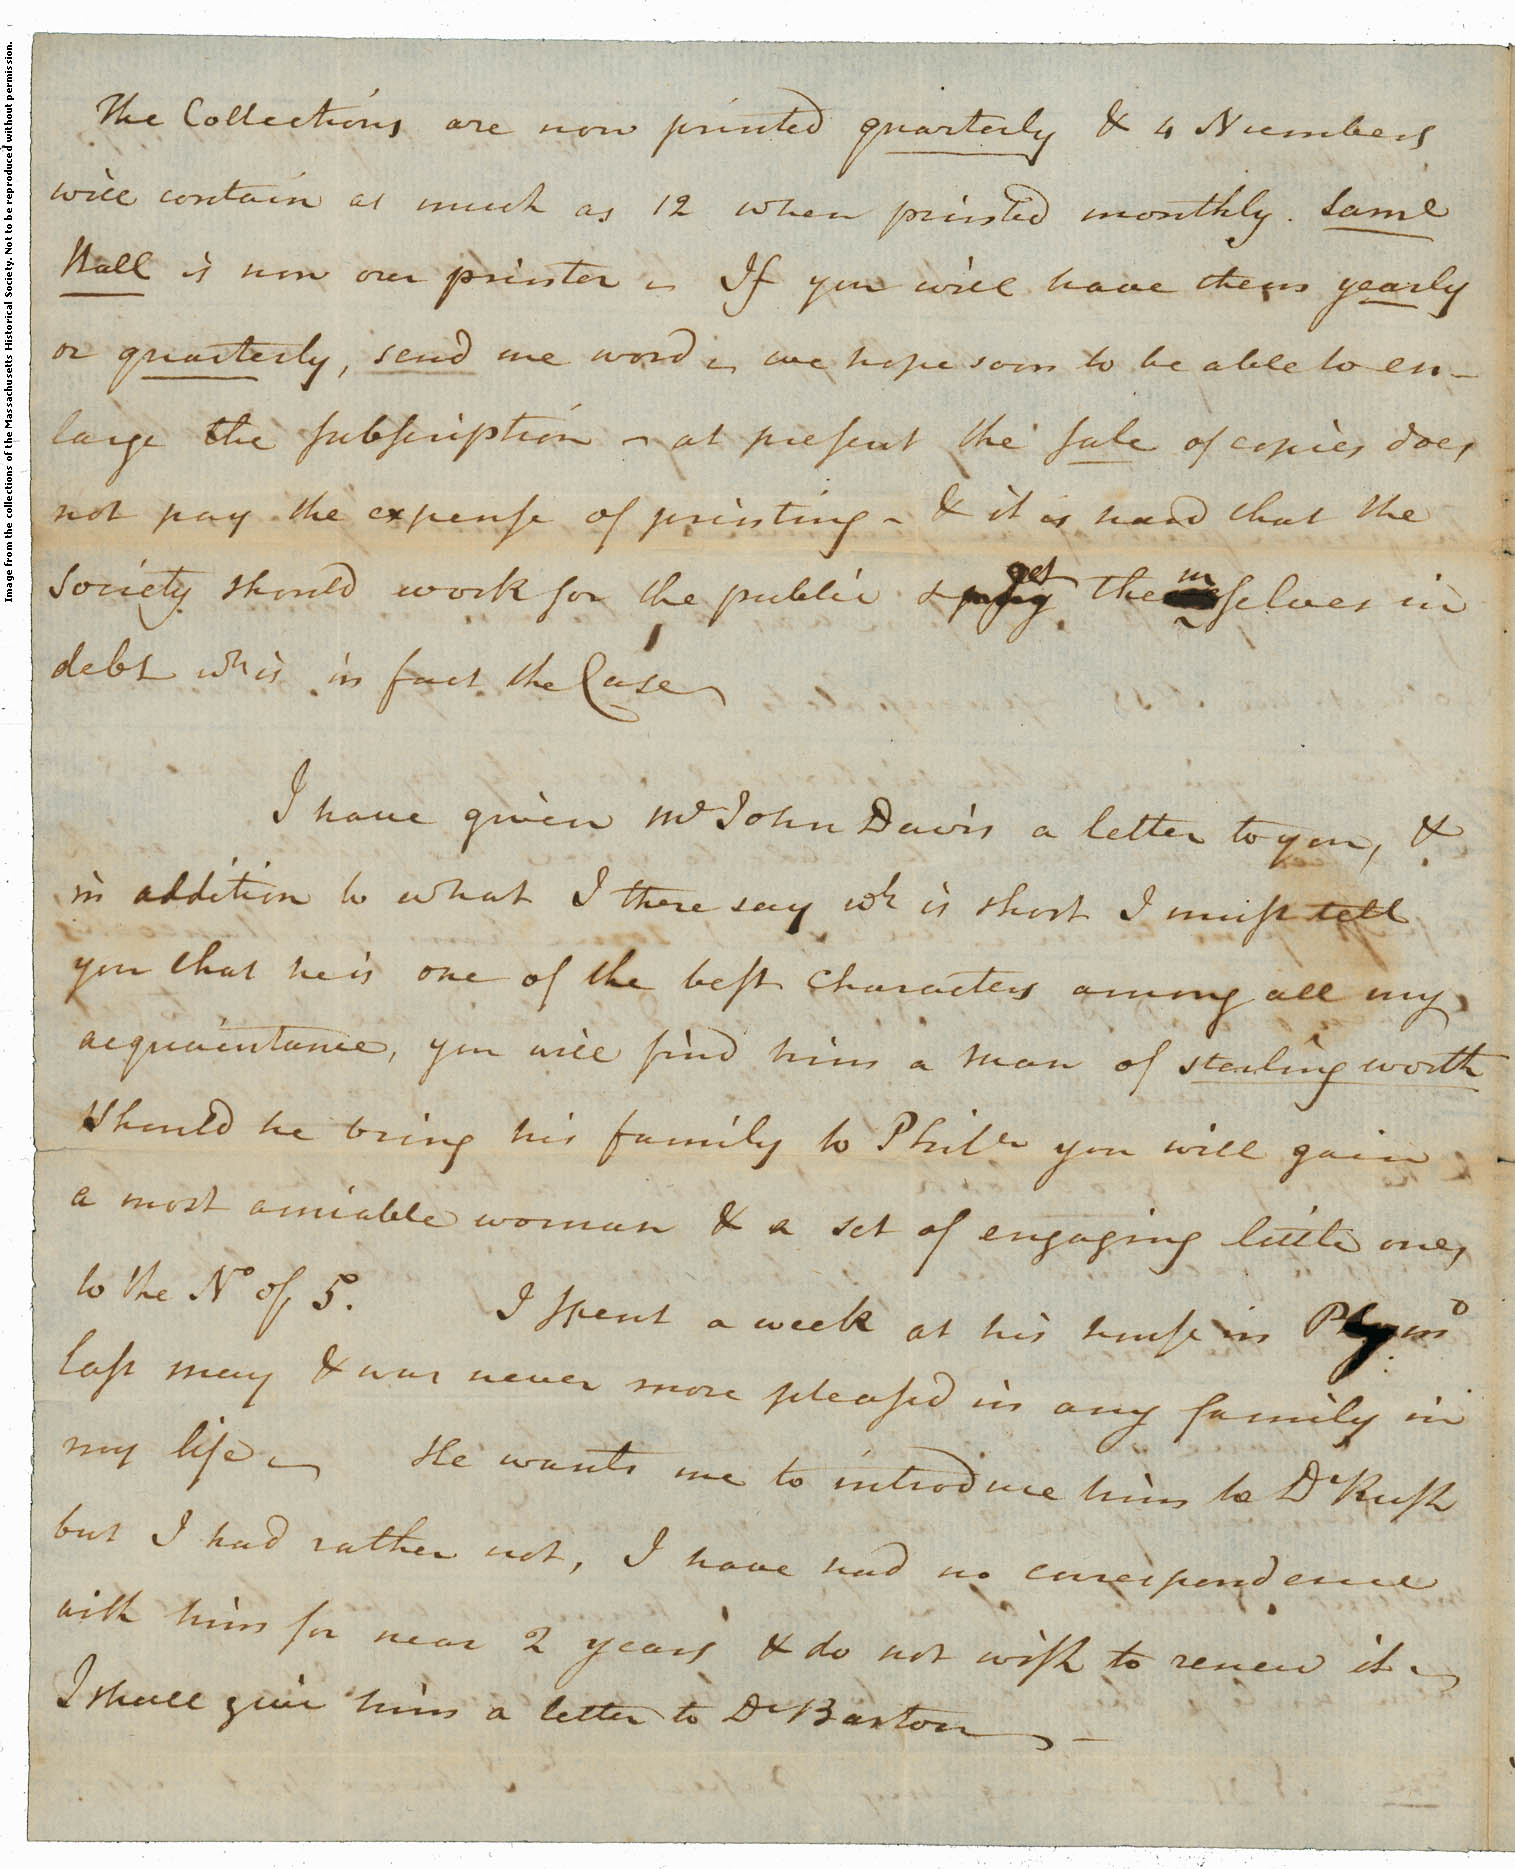 Image from the collections of the Massachusetts Historical Society. Not to be reproduced without permission.
The Collections are now printed quarterly & 4 Numbers
will contain as much as 12 when printed monthly. Saml
Hall is now our printer If you will have them yearly
or quarterly, send me word we hope soon to be able to en-
large the subscription - at present the sale of copies does
not pay the expense of printing - & it is hard that the
Society should work for the public & get themselves in
debt wh is in fact the Case
I have given Mr John Davis a letter to you, &
in addition to what I there say wh is short I must tell
you that he is one of the best Characters among all my
acquaintance, you will find him a man of sterling worth
Should he bring his family to Phila you will gain
a most amiable woman & a set of engaging little ones
to the No of 5. I spent a week at his house in Plymo
last may & was never more pleased in any family in
my life He wants me to introduce him to Dr Rush
but I had rather not, I have had no correspondence
with him for near 2 years & do not wish to renew it
I shall give him a letter to Dr Barton -